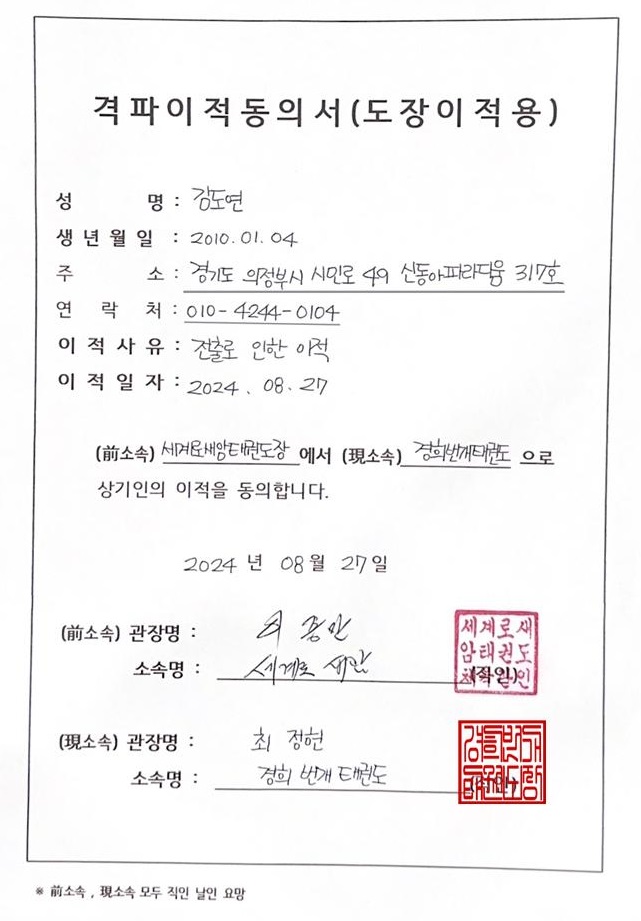 격파이적동의서(도장이적용)
성 명 : 김도연
생년월일 : 2010.01.04
주 소 : 경기도 의정부시 시민로 49 신동아파라디움 317호
연 락 처 : 010-4244-0104
이적사유 : 전출로 인한 이적
이적일자 : 2024. 08. 27
(前소속) 세계로새암태권도장 에서 (現소속) 경희번개태권도 으로
상기인의 이적을 동의합니다.
2024 년 08월 27일
(前소속) 관장명 : 최종만
소속명 : 세계로 새암
(직인)
세계로새
암태권도
(現소속) 관장명 : 최 정현
소속명 : 경희 번개 태권도
※ 前소속 , 現소속 모두 직인 날인 요망